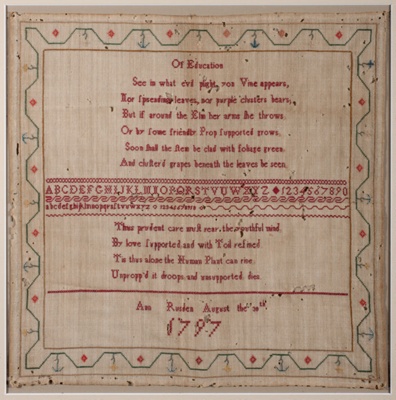 Of Education
See in what evil plight, yon Vine appears,
Nor spreading leaves, nor purple clusters bears;
But if around the Elm her arms she throws
Or by some friendly Prop supported grows
Soon shall the stem be clad with foliage green
And cluster'd grapes beneath the leaves be seen
ABCDEFGHIJKLMNOPQRSTVUWXYZ 1234567890
abcdefghijklmnopqrstvuwxyz
Thus prudent care must rear the youthful mind
By love supported and with Toil refined
'Tis thus alone the Human Plant can rise
Unpropp'd it droops and unsupported dies
Ann Rusden August the
1797